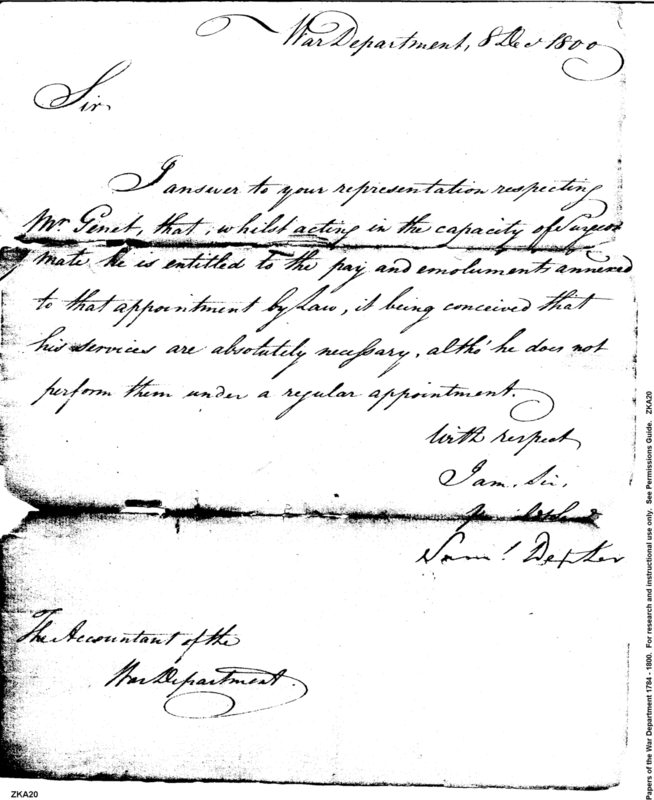 War Department, 8 Dec.r 1800
Sir
I answer to your representation respecting
Mr. Genet, that, whilst acting in the capacity of Surgeon
mate he is entitled to the pay and emoluments annexed
to that appointment by Law, it being conceived that
his services are absolutely necessary, altho' he does not
perform them under a regular appointment.
With respect
I am, Sir,
Sam.l Dexter
The Accountant of the
War Department.
ZKA20
Papers of the War Department 1784 - 1800. For research and instructional use only. See Permissions Guide. ZKA20